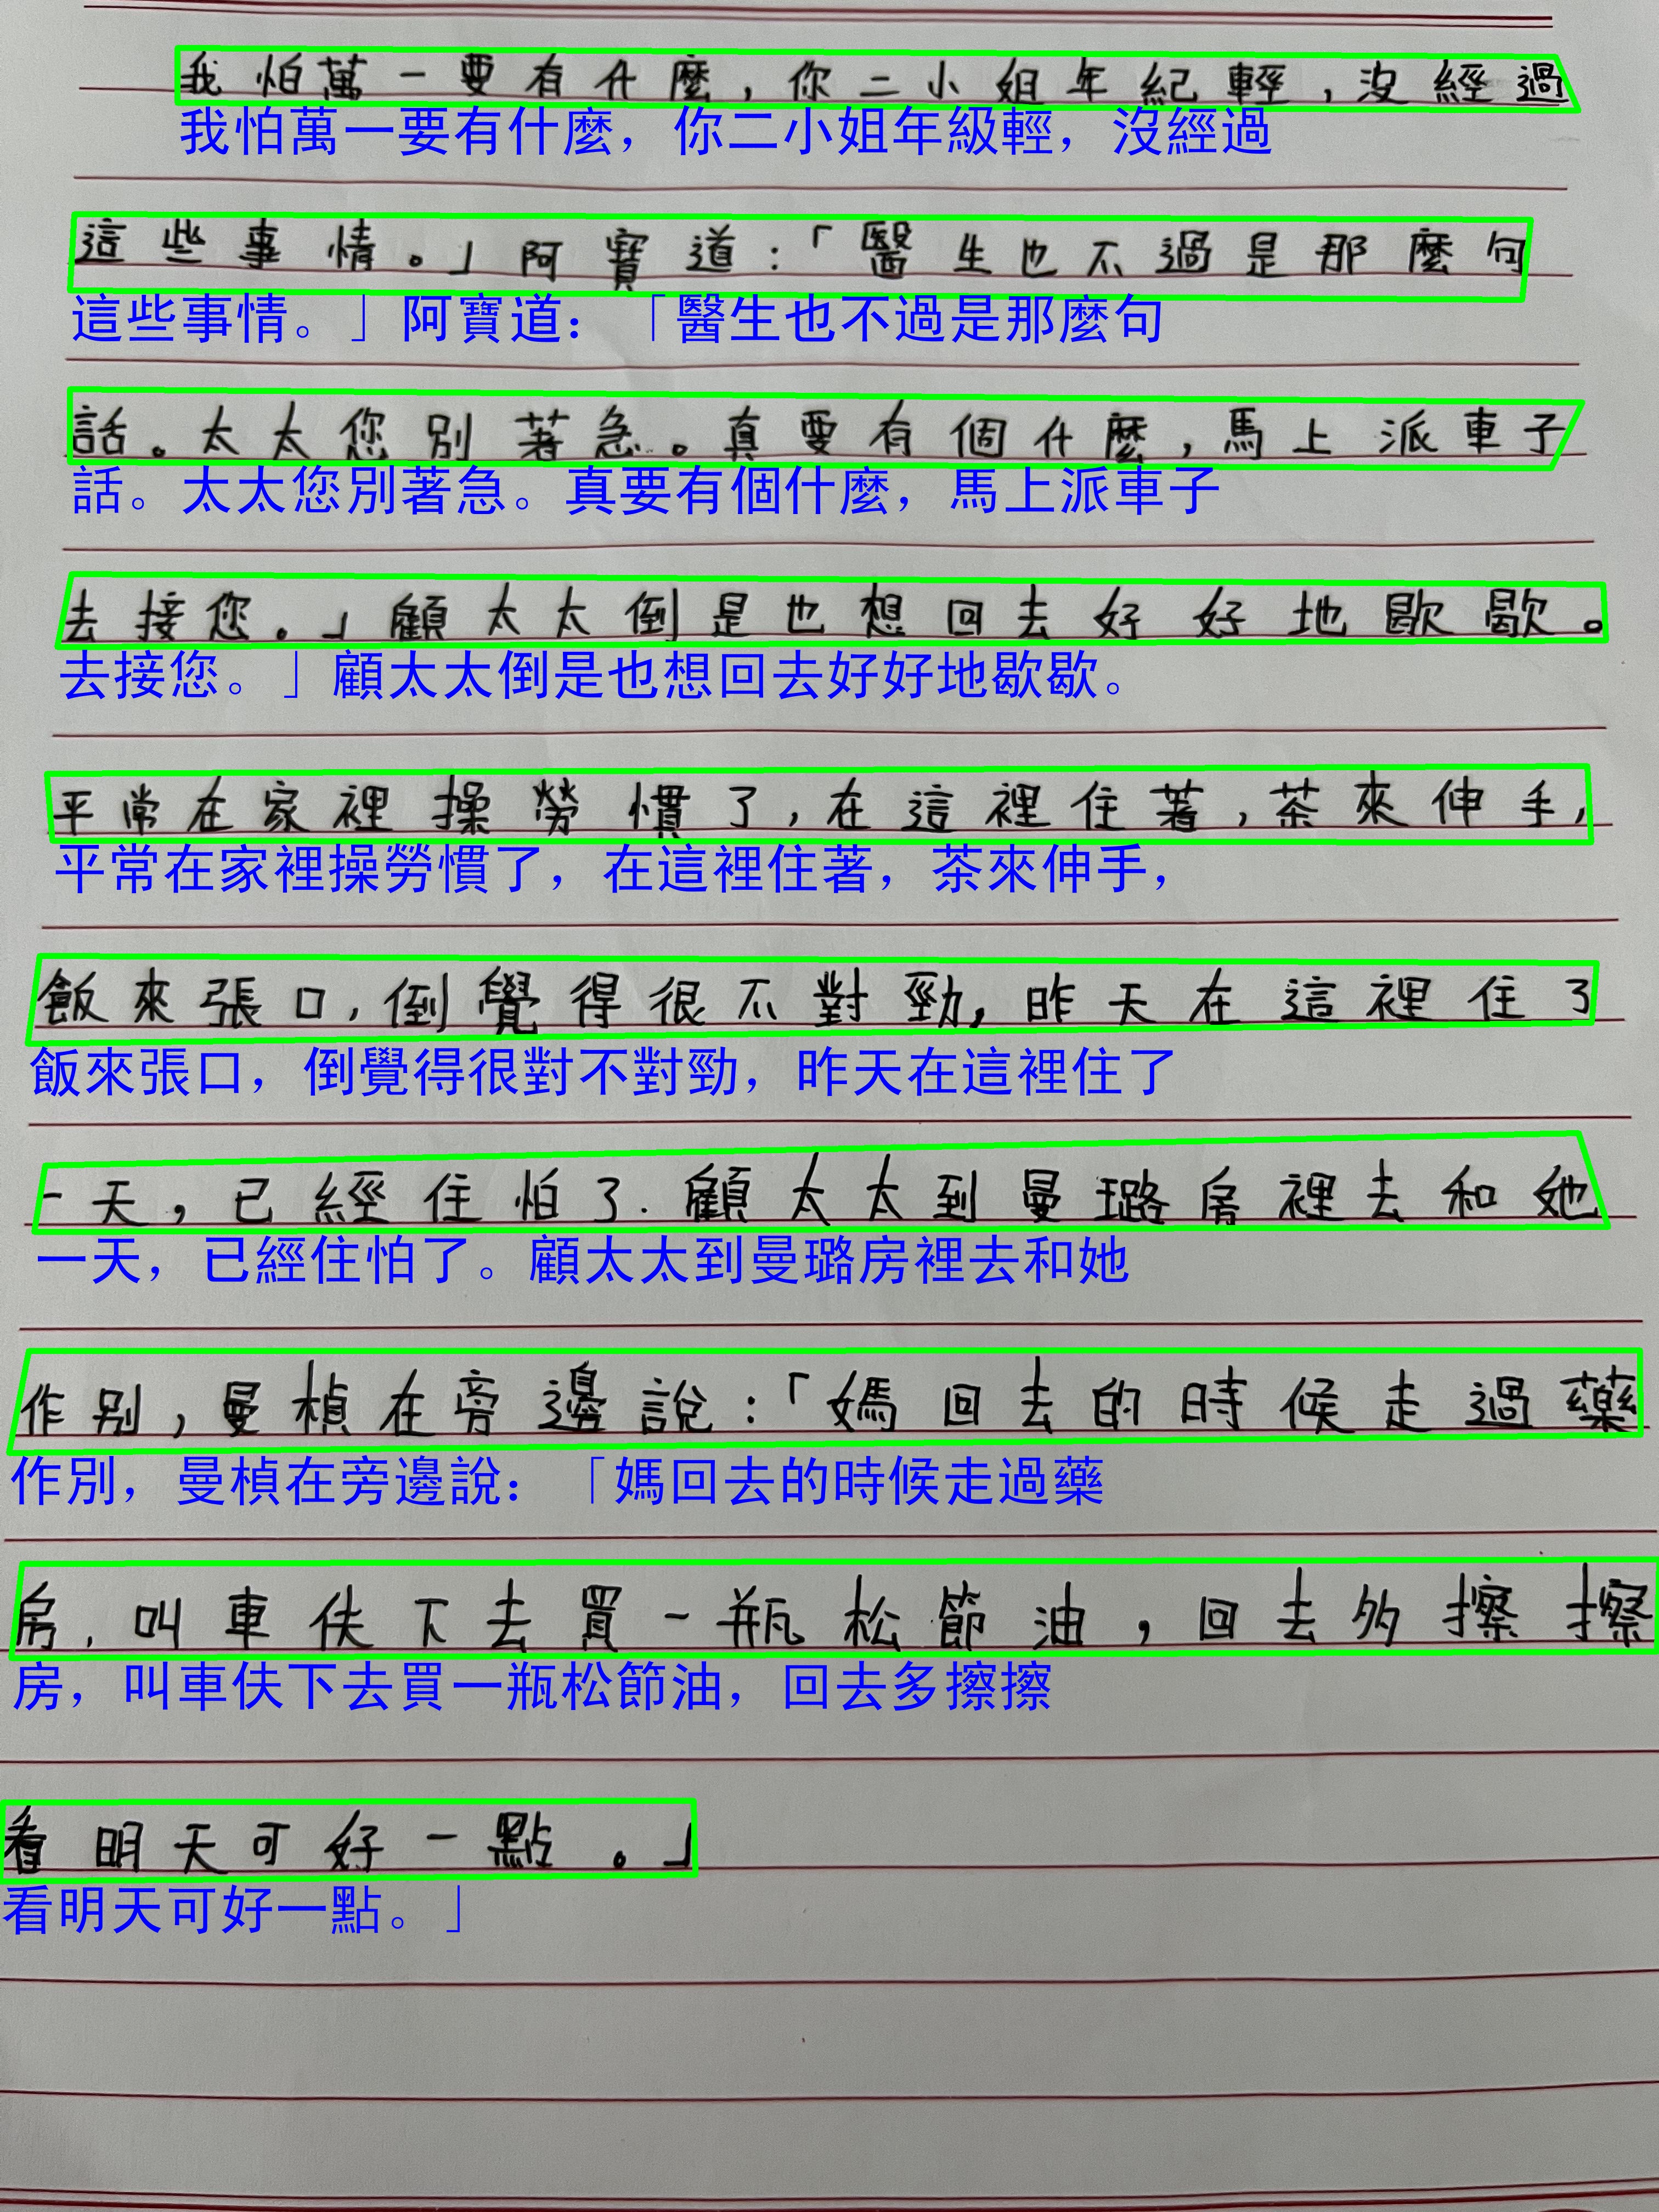 我怕萬一要有什麼，你二小姐年紀輕，沒經過
我怕萬一要有什麼，你二小姐年級輕，沒經過
這些事情。」阿寶道：「醫生也不過是那麼句
這些事情。」阿寶道：「醫生也不過是那麼句
話。太太您別著急。真要有個什麼，馬上派車子
話。太太您別著急。真要有個什麼，馬上派車子
去接您。」顧太太倒是也想回去好好地歇歇。
去接您。」顧太太倒是也想回去好好地歇歇。
平常在家裡操勞慣了，在這裡住著，茶來伸手，
平常在家裡操勞慣了，在這裡住著，茶來伸手，
飯來張口，倒覺得很不對勁，昨天在這裡住了
飯來張口，倒覺得很對不對勁，昨天在這裡住了
一天，已經住怕了．顧太太到曼璐房裡去和她
一天，已經住怕了。顧太太到曼璐房裡去和她
作別，曼楨在旁邊說：「媽回去的時候走過藥
作別，曼楨在旁邊說：「媽回去的時候走過藥
房，叫車伕下去買一瓶松節油，回去多擦擦
房，叫車伕下去買一瓶松節油，回去多擦擦
看明天可好一點。」
看明天可好一點。」